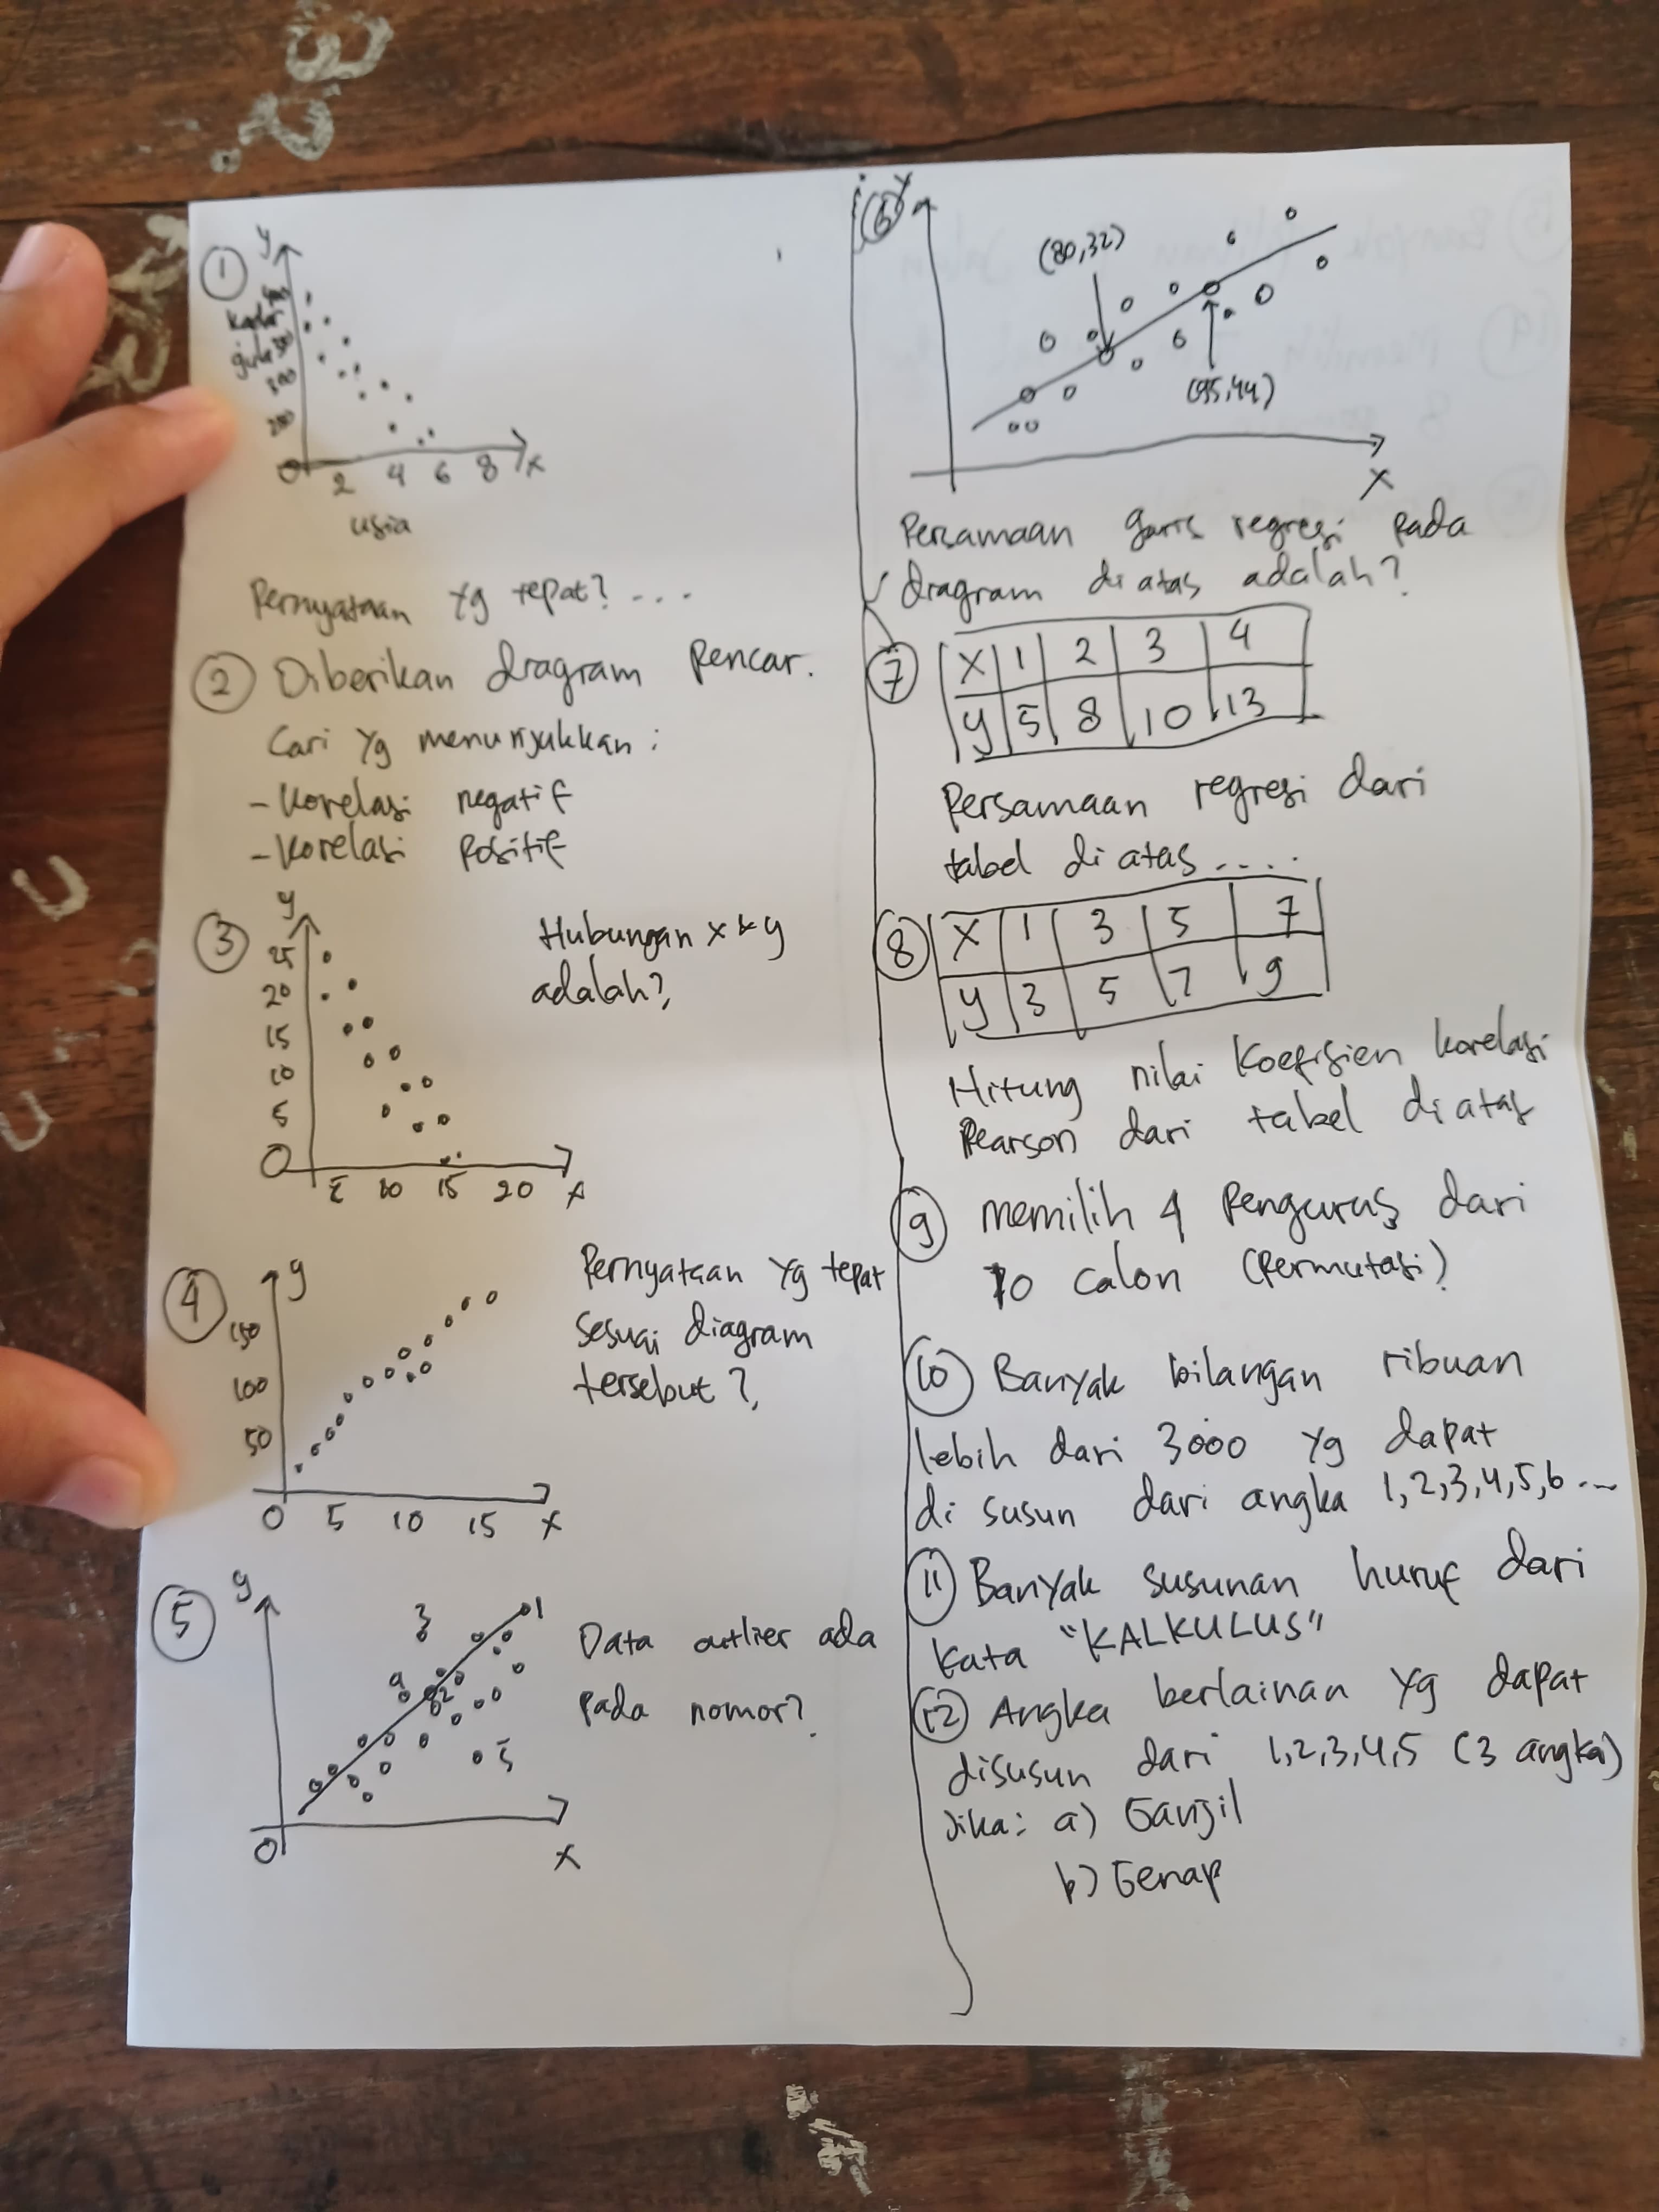 ①
y
kadar
gula
300
200
0
2 4 6 8 x
usia
Pernyataan yg tepat? ...
② Diberikan diagram Pencar.
Cari yg menunjukkan :
- Korelasi negatif
- Korelasi Positif
③
y
25
20
15
10
5
0
5 10 15 20 x
Hubungan x & y
adalah?
④
y
150
100
50
0 5 10 15 x
Pernyataan yg tepat
sesuai diagram
tersebut?
⑤
y
3
1
2
5
0
x
Data outlier ada
pada nomor?
⑥
y
(80,32)
(95,44)
x
Persamaan garis regresi pada
diagram di atas adalah?
⑦
x 1 2 3 4
y 5 8 10 13
Persamaan regresi dari
tabel di atas ....
⑧
x 1 3 5 7
y 3 5 7 9
Hitung nilai Koefisien korelasi
Pearson dari tabel di atas
⑨ memilih 4 Pengurus dari
10 calon (Permutasi)
⑩ Banyak bilangan ribuan
lebih dari 3000 yg dapat
di susun dari angka 1,2,3,4,5,6 ...
⑪ Banyak susunan huruf dari
kata "KALKULUS"
⑫ Angka berlainan yg dapat
disusun dari 1,2,3,4,5 (3 angka)
Jika: a) Ganjil
b) Genap